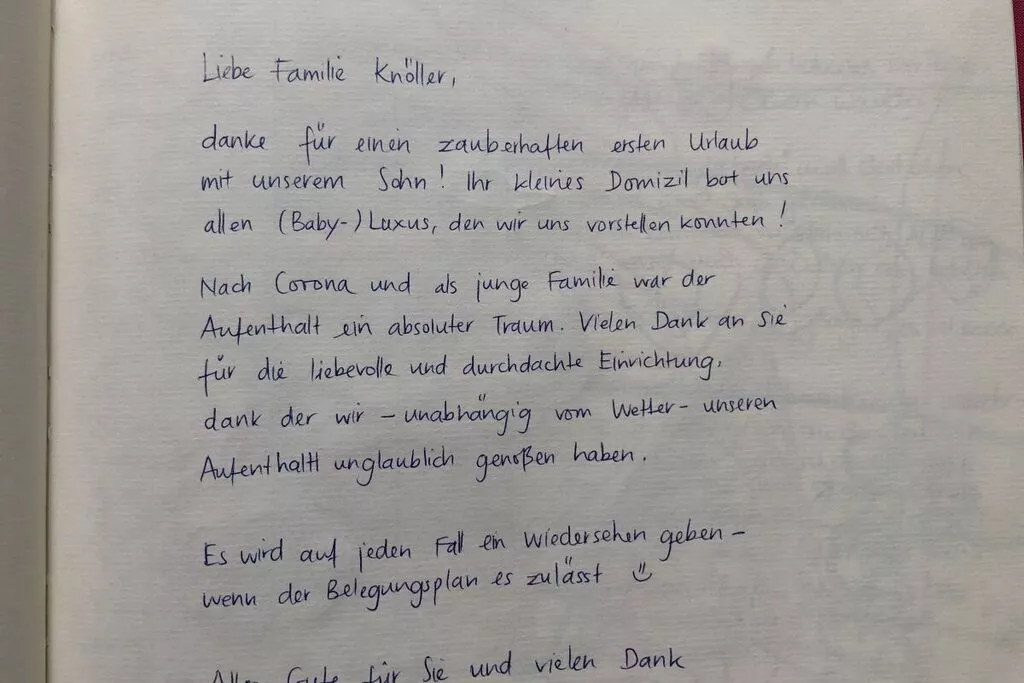 Liebe Familie Knöller,
danke für einen zauberhaften ersten Urlaub
mit unserem Sohn! Ihr kleines Domizil bot uns
allen (Baby-) Luxus, den wir uns vorstellen konnten!
Nach Corona und als junge Familie war der
Aufenthalt ein absoluter Traum. Vielen Dank an Sie
für die liebevolle und durchdachte Einrichtung,
dank der wir – unabhängig vom Wetter – unseren
Aufenthalt unglaublich genoßen haben.
Es wird auf jeden Fall ein Wiedersehen geben –
wenn der Belegungsplan es zulässt ☺
Gute für Sie und vielen Dank